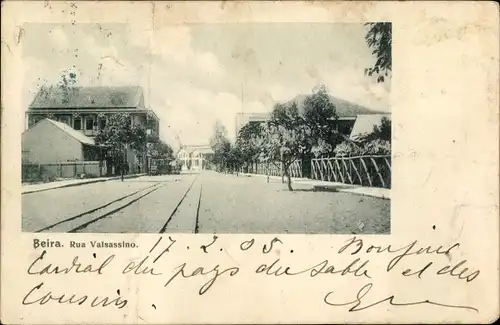 Beira. Rua Valsassino. 17. 2. 05. Bonjour
Cordial du pays du sable et des
Cousins.